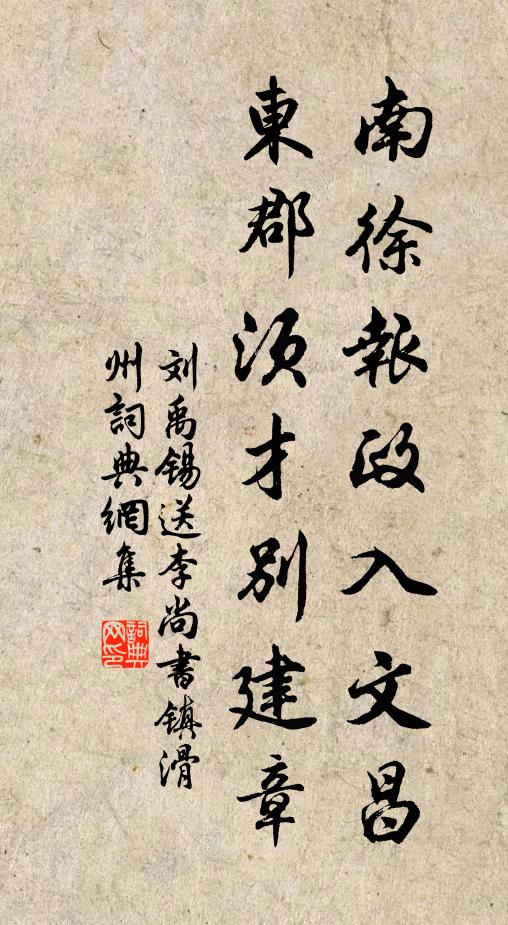 南徐報政入文昌
東郡須才別建章
刘禹锡送李尚書镇滑
州詞典網集
詞典
网印